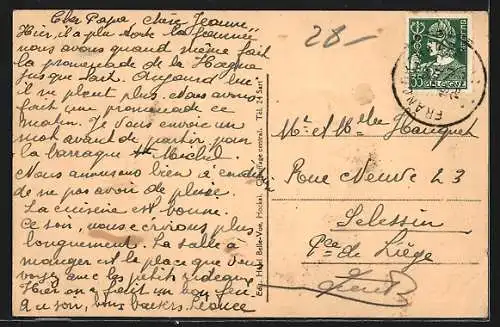 Cher Papa Chère Jeanne,
Hier, il a plu toute la journée
nous avons quand même fait
la promenade de la Hoëgne
jusque tard. Aujourd'hui
il ne pleut plus. Nous avons
fait une promenade ce
matin. Je vous envoie un
mot avant de partir pour
la barraque St Michel.
Nous
de ne pas avoir de pluie.
La cuisine est bonne.
Ce soir, nous écrirons plus
longuement. La salle à
manger est la place que vous
voyez avec les petits rideaux.
Hier on a fait un bon feu
Au soir, bons baisers. Léonce
28 -
Edit. Hôtel Belle-Vue, Hockai. Chauffage central. Tél. 24 Sart
BELGIQUE
35
Mr et Mlle Hauquet
Rue Neuve 23
Sclessin
Pce de Liège